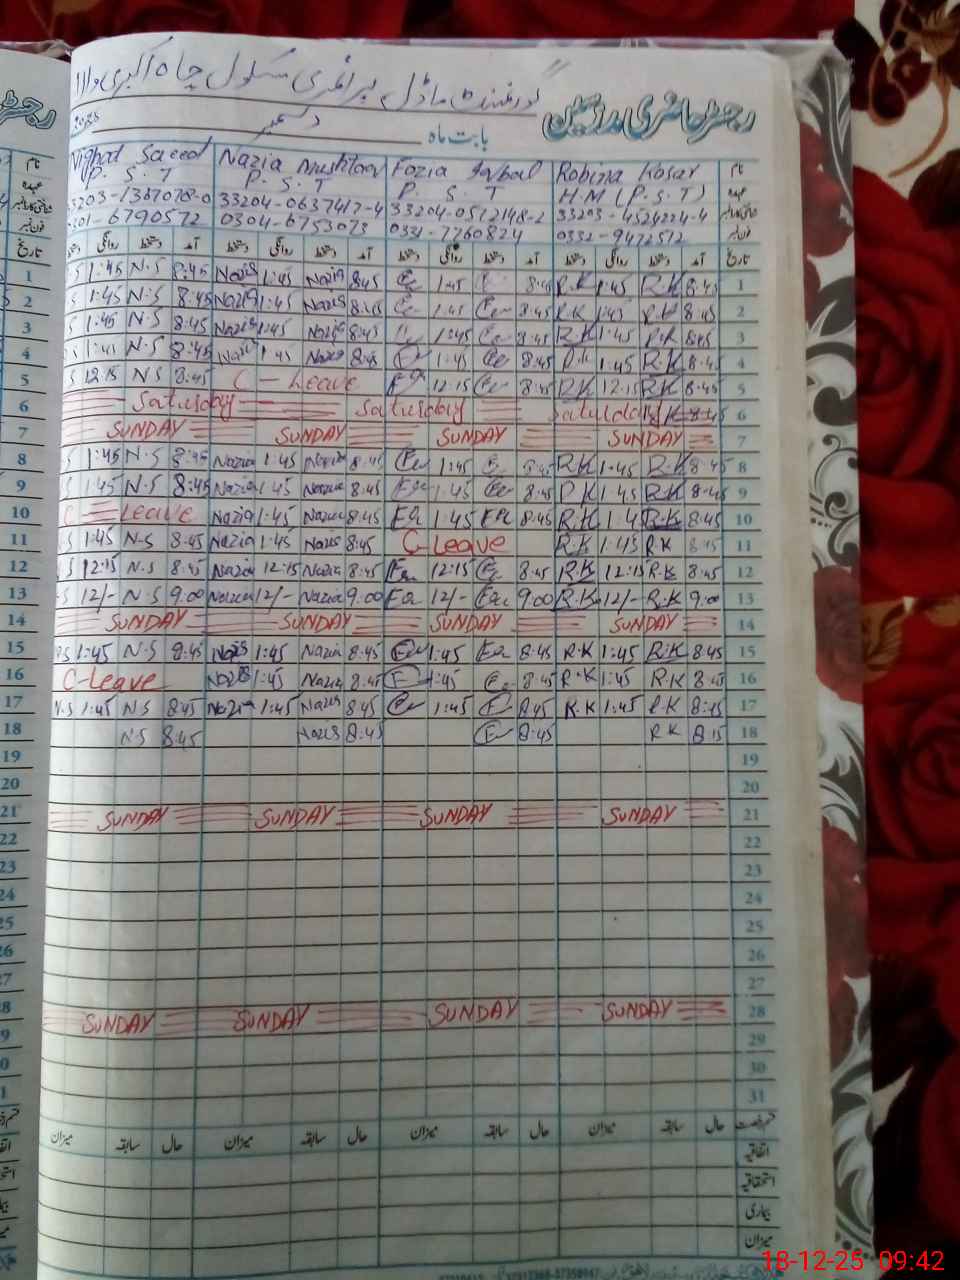 گورنمنٹ ماڈل پرائمری سکول چاہ اکبری والا
رجسٹر حاضری مدرسین
بابت ماہ دسمبر 2025
نام Robina Kosar Fozia Iqbal Nazia Mushtaq Nighat Saeed
عہدہ H.M (P.S.T) P.S.T P.S.T P.S.T
33203-4524224-4 33204-0512148-2 33204-0637417-4 3203-1367078-0
فون نمبر 0332-9472512 0331-7760824 0304-6753073 301-6790572
تاریخ آمد دستخط روانگی دستخط آمد دستخط روانگی دستخط آمد دستخط روانگی دستخط آمد دستخط روانگی دستخط
S 1:45 N.S 8:45 Nazia 1:45 Nazia 8:45 1:45 8:45 R.K 1:45 R.K 8:45 1
S 1:45 N.S 8:45 Nazia 1:45 Nazia 8:45 1:45 8:45 R.K 1:45 R.K 8:45 2
S 1:45 N.S 8:45 Nazia 1:45 Nazia 8:45 1:45 8:45 R.K 1:45 R.K 8:45 3
S 1:45 N.S 8:45 Nazia 1:45 Nazia 8:45 1:45 8:45 R.K 1:45 R.K 8:45 4
S 12:15 N.S 8:45 C-Leave 12:15 8:45 R.K 12:15 R.K 8:45 5
Saturday Saturday Saturday R.K 8:45 6
SUNDAY SUNDAY SUNDAY SUNDAY 7
S 1:45 N.S 8:45 Nazia 1:45 Nazia 8:45 1:45 8:45 R.K 1:45 R.K 8:45 8
S 1:45 N.S 8:45 Nazia 1:45 Nazia 8:45 1:45 8:45 R.K 1:45 R.K 8:45 9
C-Leave Nazia 1:45 Nazia 8:45 1:45 8:45 R.K 1:4 R.K 8:45 10
S 1:45 N.S 8:45 Nazia 1:45 Nazia 8:45 C-Leave R.K 1:45 R.K 8:45 11
S 12:15 N.S 8:45 Nazia 12:15 Nazia 8:45 12:15 8:45 R.K 12:15 R.K 8:45 12
S 12/- N.S 9:00 Nazia 12/- Nazia 9:00 12/- 9:00 R.K 12/- R.K 9:00 13
SUNDAY SUNDAY SUNDAY SUNDAY 14
N.S 1:45 N.S 8:45 Nazia 1:45 Nazia 8:45 1:45 8:45 R.K 1:45 R.K 8:45 15
C-Leave Nazia 1:45 Nazia 8:45 1:45 8:45 R.K 1:45 R.K 8:45 16
N.S 1:45 N.S 8:45 Nazia 1:45 Nazia 8:45 1:45 8:45 R.K 1:45 R.K 8:45 17
N.S 8:45 Nazia 8:45 8:45 R.K 8:15 18
19
20
SUNDAY SUNDAY SUNDAY SUNDAY 21
22
23
24
25
26
27
SUNDAY SUNDAY SUNDAY SUNDAY 28
29
30
31
قسم رخصت حال سابقہ میزان حال سابقہ میزان حال سابقہ میزان حال سابقہ میزان
اتفاقیہ
استحقاقیہ
بیماری
میزان
18-12-25 09:42